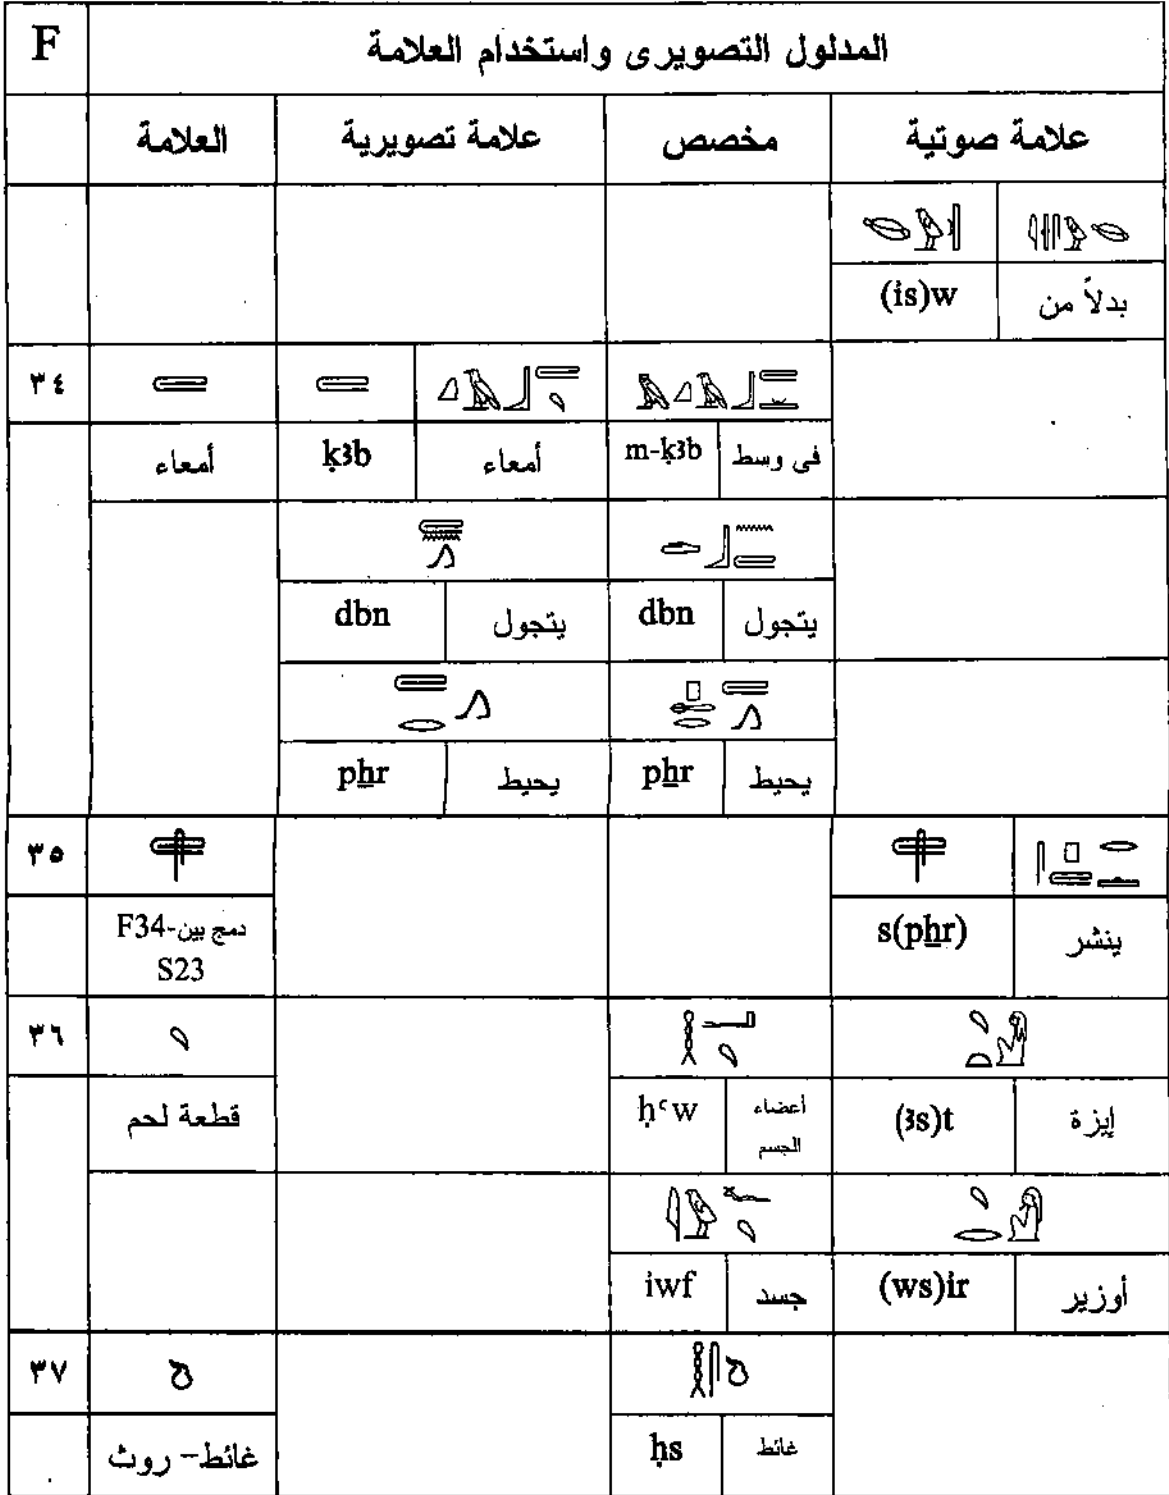 F المدلول التصويرى واستخدام العلامة
العلامة علامة تصويرية مخصص علامة صوتية
(is)w بدلاً من
٣٤
أمعاء ḳꜣb أمعاء m-ḳꜣb فى وسط
dbn يتجول dbn يتجول
pẖr يحيط pẖr يحيط
٣٥
دمج بين-F34 s(pẖr) ينشر
S23
٣٦
قطعة لحم ḥꜥw أعضاء الجسم (ꜣs)t إيزة
iwf جسد (ws)ir أوزير
٣٧
غائط– روث ḥs غائط